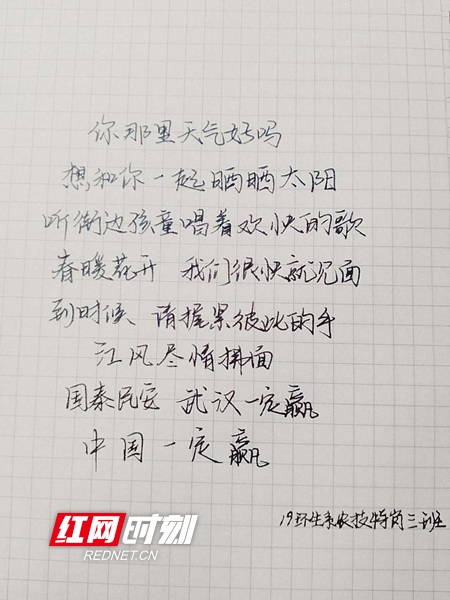 你那里天气好吗
想和你一起晒晒太阳
听街边孩童唱着欢快的歌
春暖花开 我们很快就见面
到时候、请握紧彼此的手
江风尽情拂面
国泰民安 武汉一定赢
中国一定赢
19环生系农技特岗三班
红网时刻
REDNET.CN